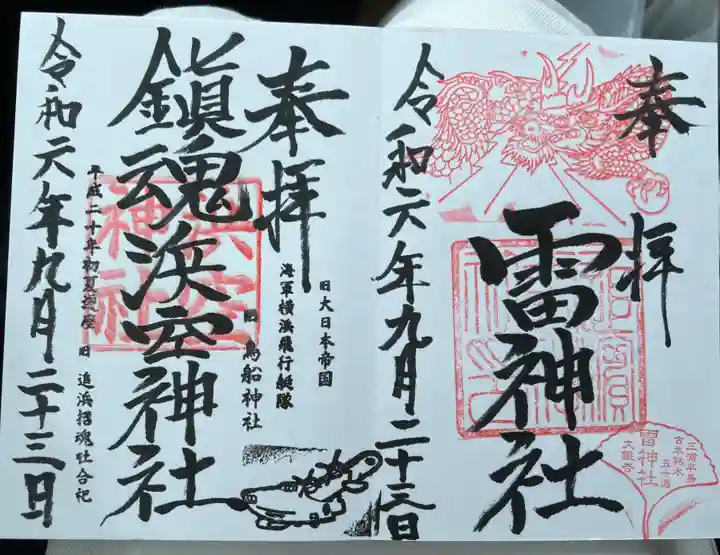 奉拝
雷神社
令和六年九月二十三日
雷神社
三浦半島
古木銘木
五十選
大銀杏
奉拝
旧大日本帝国
海軍横浜飛行艇隊
旧 鳥船神社
鎮魂浜空神社
浜空
神社
平成二十年初夏遷座
旧 追浜招魂社合祀
令和六年九月二十三日